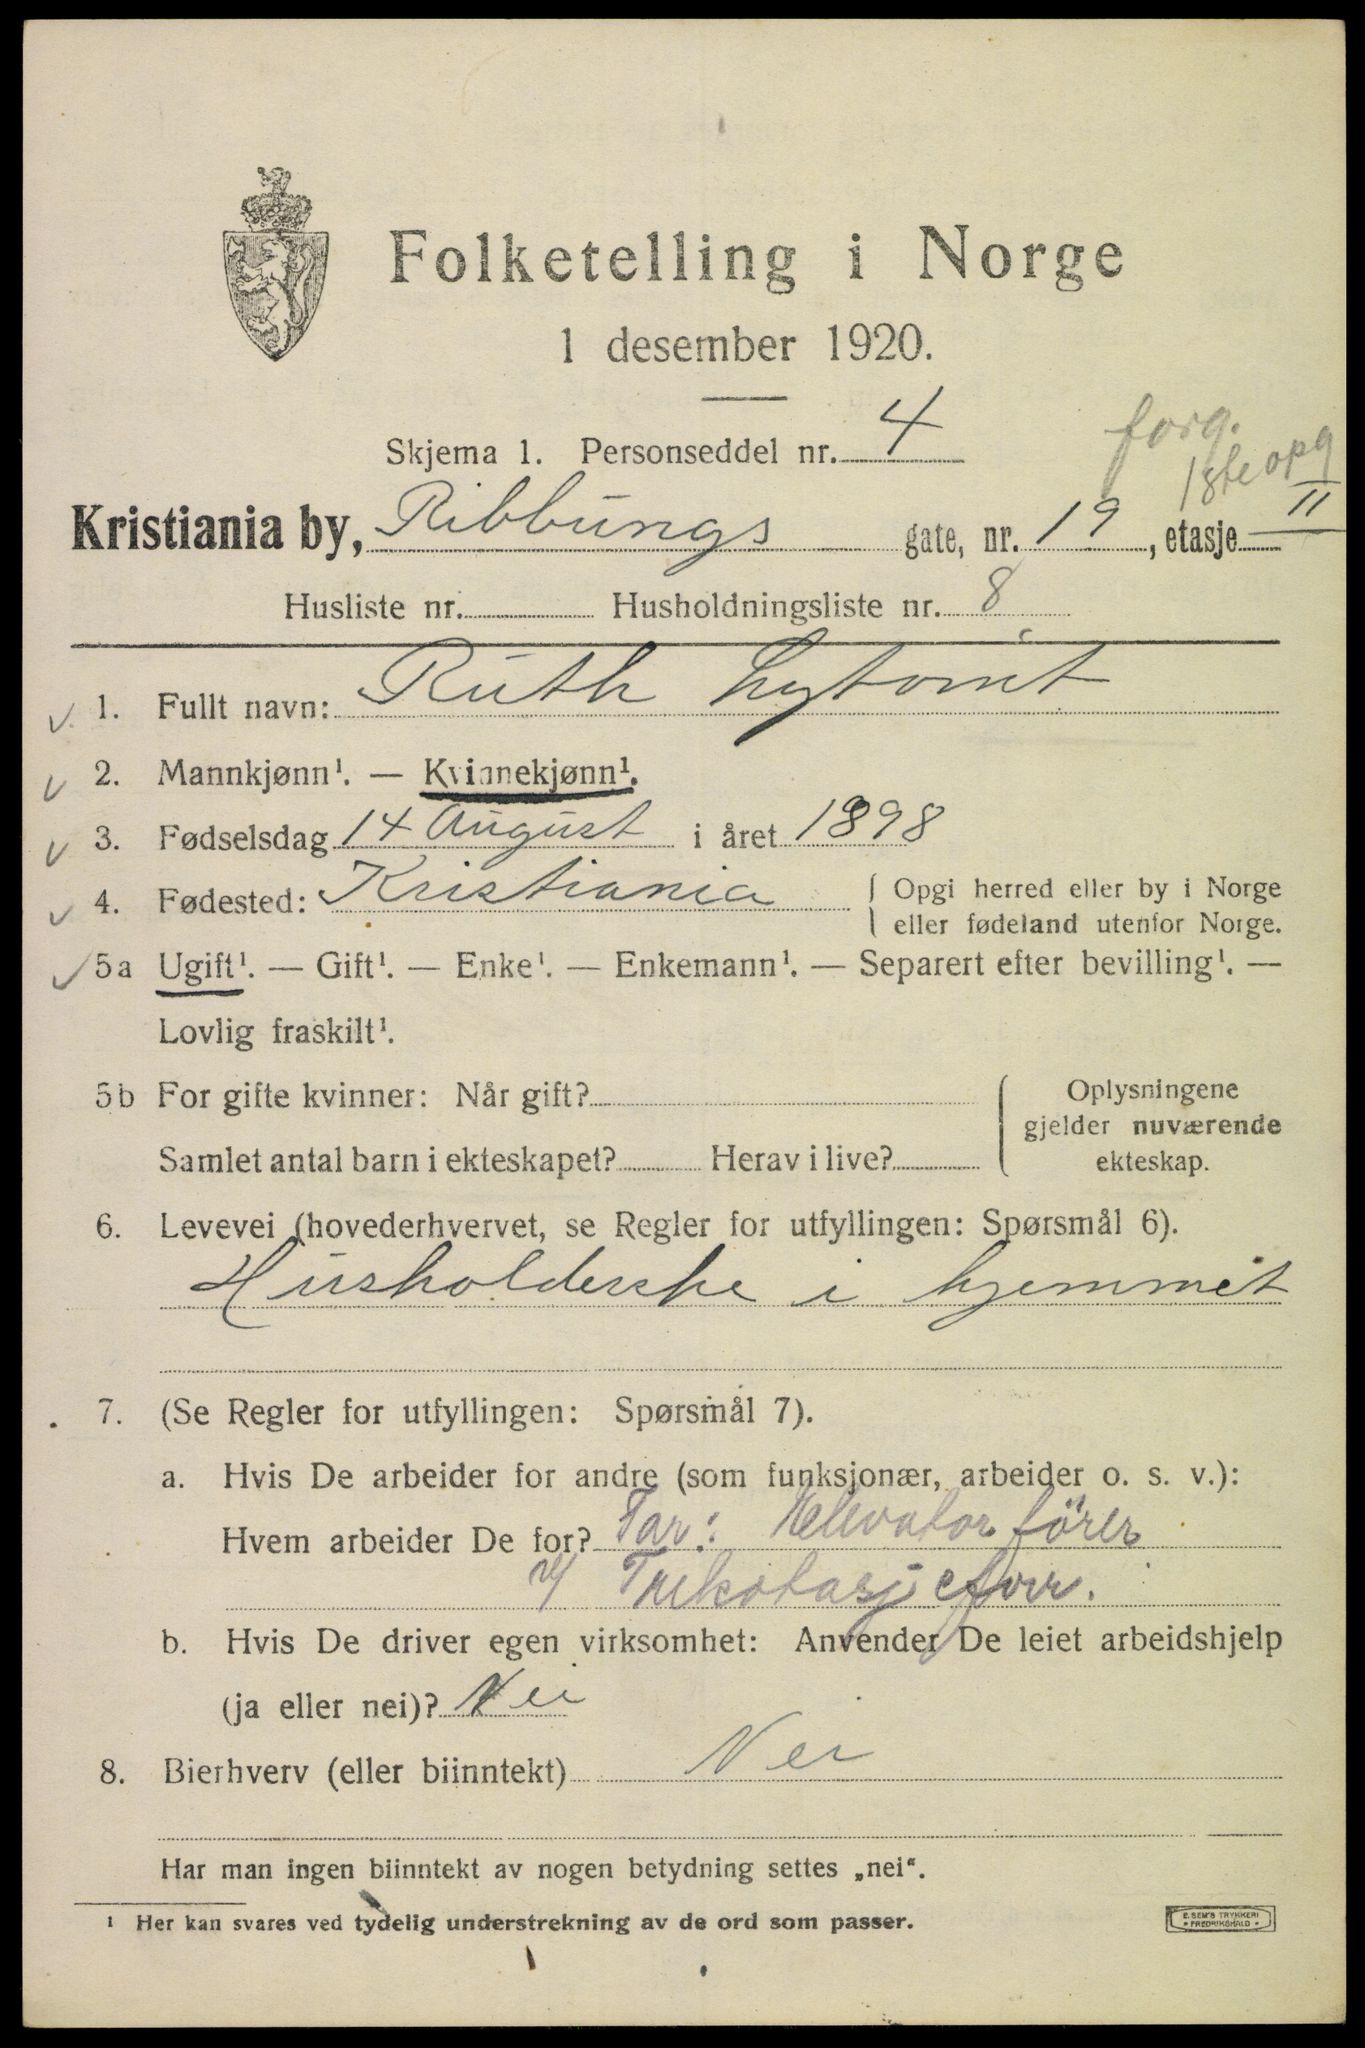 Folketelling i Norge
1 desember 1920.
forg.
1ste opg
Skjema 1. Personseddel nr. 4
Kristiania by, Ribbungs gate, nr. 19, etasje II
Husliste nr. Husholdningsliste nr. 8
1. Fullt navn: Ruth
2. Mannkjønn¹. — Kvinnekjønn¹.
3. Fødselsdag 14 August i året 1898
4. Fødested: Kristiania { Opgi herred eller by i Norge
eller fødeland utenfor Norge.
5a Ugift¹. — Gift¹. — Enke¹. — Enkemann¹. — Separert efter bevilling¹. —
Lovlig fraskilt¹.
5b For gifte kvinner: Når gift? { Oplysningene
gjelder nuværende
Samlet antal barn i ekteskapet? Herav i live? ekteskap.
6. Levevei (hovederhvervet, se Regler for utfyllingen: Spørsmål 6).
Husholderske i hjemmet
7. (Se Regler for utfyllingen: Spørsmål 7).
a. Hvis De arbeider for andre (som funksjonær, arbeider o. s. v.):
Hvem arbeider De for? Far: Elevatorfører
v/ Trikotasjeforr.
b. Hvis De driver egen virksomhet: Anvender De leiet arbeidshjelp
(ja eller nei)? Nei
8. Bierhverv (eller biinntekt) Nei
Har man ingen biinntekt av nogen betydning settes „nei“.
¹ Her kan svares ved tydelig understrekning av de ord som passer.
E. SEM'S TRYKKERI
• FREDRIKSHALD •